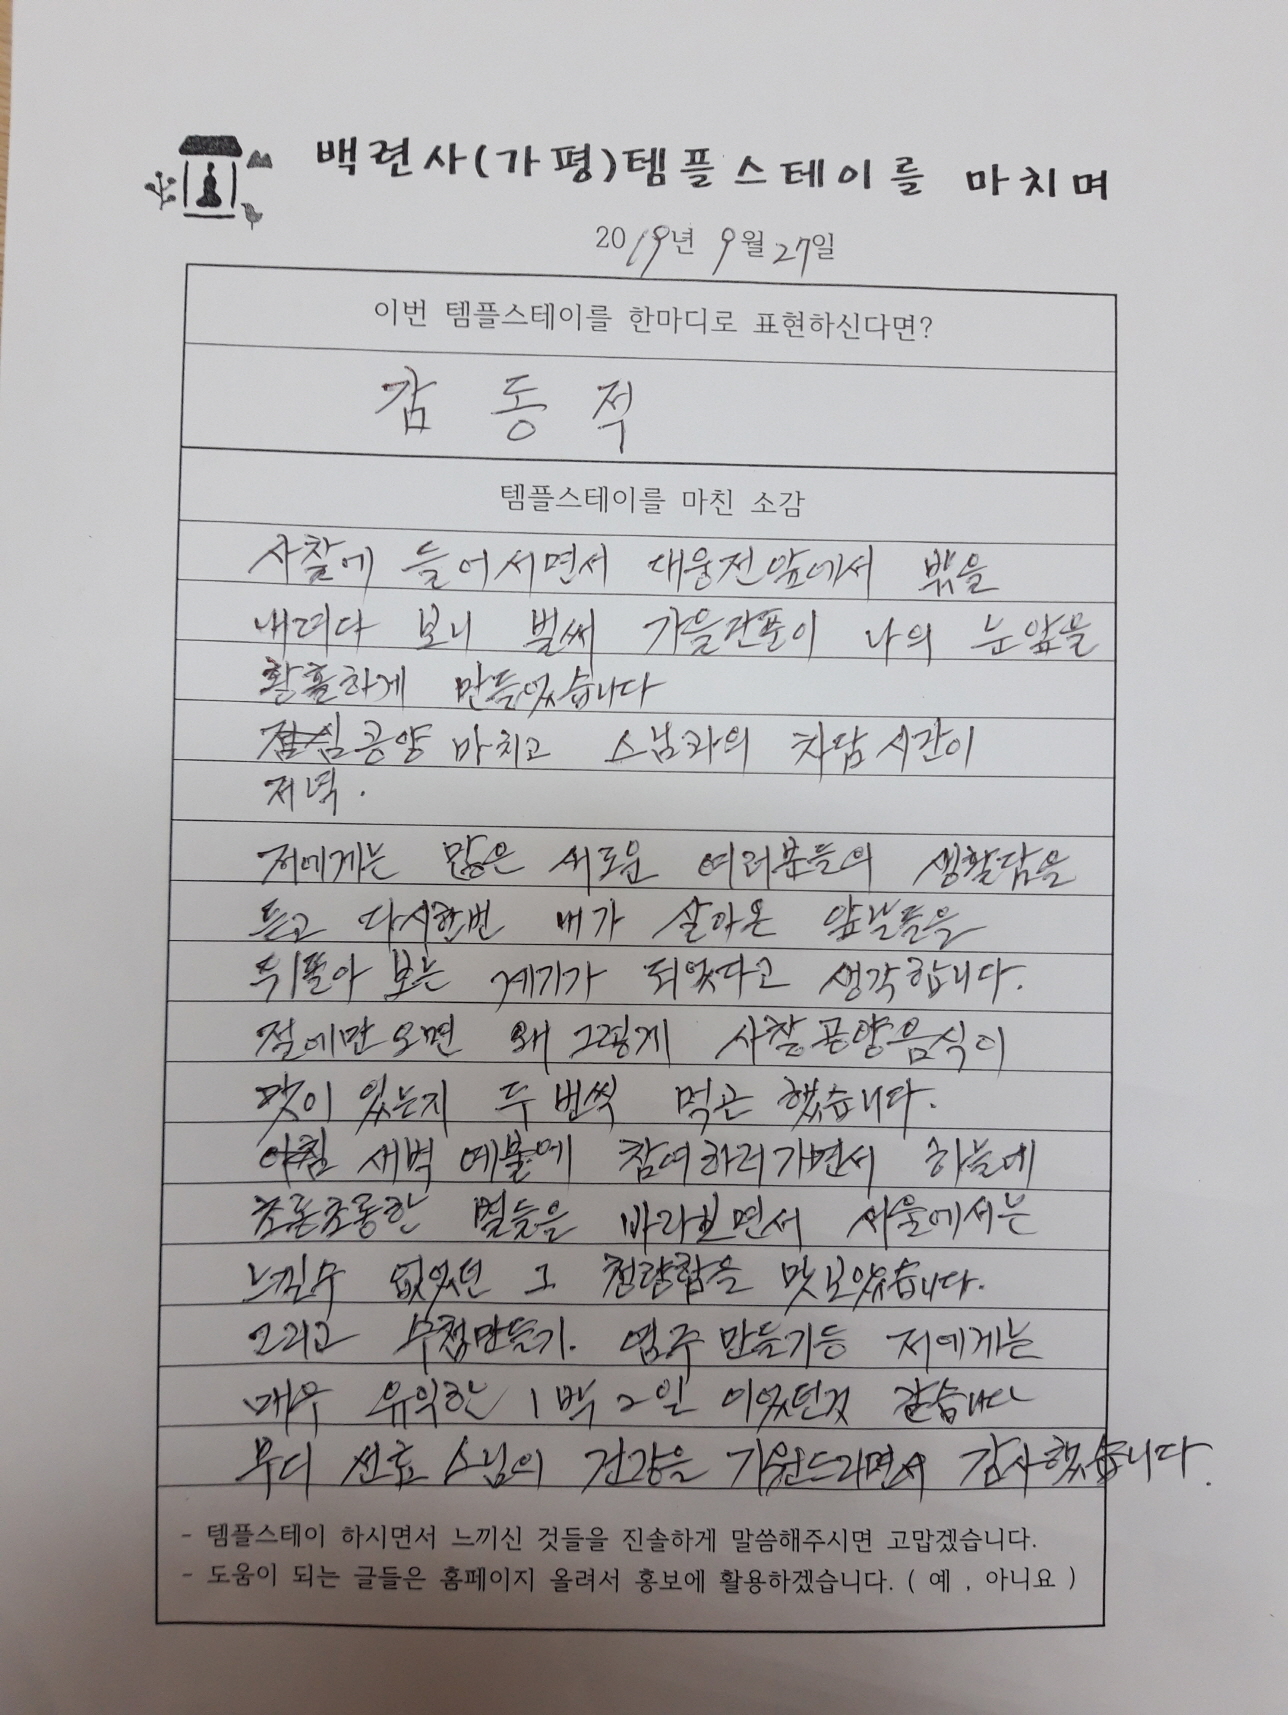 백련사(가평)템플스테이를 마치며
2019년 9월 27일
이번 템플스테이를 한마디로 표현하신다면?
감동적
템플스테이를 마친 소감
사찰에 들어서면서 대웅전앞에서 밖을
내려다 보니 벌써 가을단풍이 나의 눈앞을
황홀하게 만들었습니다
점심공양 마치고 스님과의 차담시간이
저녁.
저에게는 많은 새로운 여러분들의 생활담을
듣고 다시한번 내가 살아온 앞날들을
뒤돌아 보는 계기가 되었다고 생각합니다.
절에만오면 왜 그렇게 사찰공양음식이
맛이 있는지 두번씩 먹곤 했습니다.
아침 새벽 예불에 참여하러가면서 하늘에
초롱초롱한 별들을 바라보면서 서울에서는
느낄수 없었던 그 청량함을 맛보았습니다.
그리고 수첩만들기. 염주만들기등 저에게는
매우 유익한 1박2일 이었던것 같습니다
무디 선효 스님의 건강을 기원드리면서 감사했습니다.
- 템플스테이 하시면서 느끼신 것들을 진솔하게 말씀해주시면 고맙겠습니다.
- 도움이 되는 글들은 홈페이지 올려서 홍보에 활용하겠습니다. ( 예 , 아니요 )